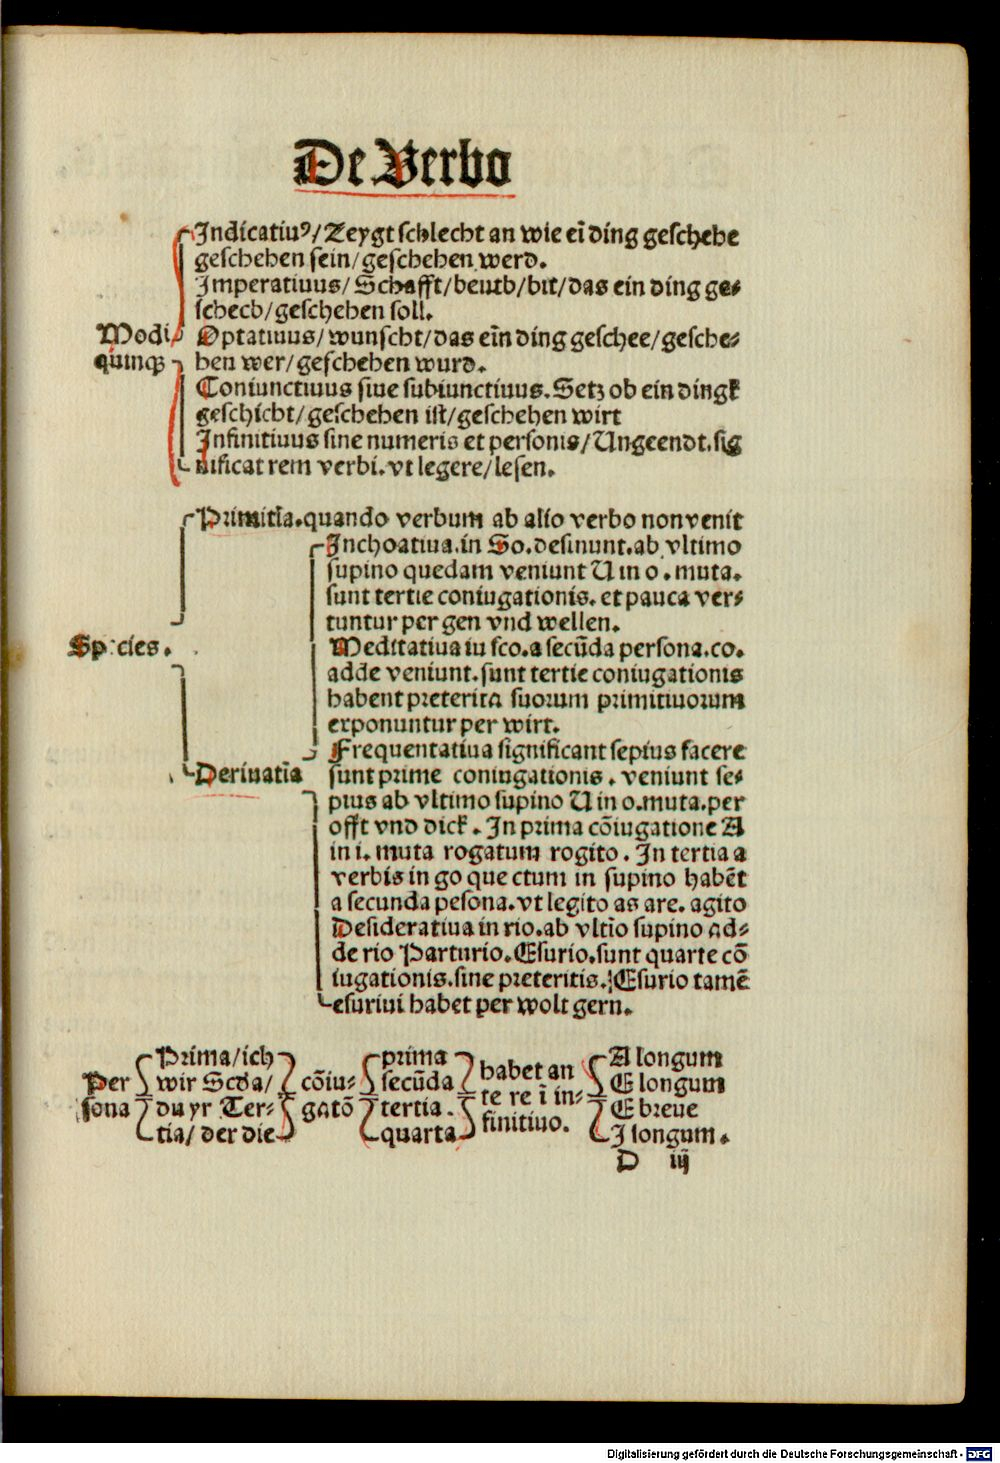 De Verbo
Indicatiuꝰ/Zeygt schlecht an wie eī ding geschehe
geschehen sein/geschehen werd.
Imperatiuus/Schafft/beutb/bit/das ein ding ge⸗
schech/geschehen soll.
Modi Optatiuus/wunscht/das eīn ding geschee/gesche⸗
quinqꝫ hen wer/geschehen wurd.
Coniunctiuus siue subiunctiuus. Setz ob ein dingk
geschicht/geschehen ist/geschehen wirt
Infinitiuus sine numeris et personis/Ungeendt.sig
nificat rem verbi.vt legere/lesen.
Primitīa.quando verbum ab alio verbo non venit
Inchoatiua.in So.desinunt.ab vltimo
supino quedam veniunt U in o.muta.
sunt tertie coniugationis. et pauca ver⸗
tuntur per gen vnd wellen.
Species. Meditatiua iu sco.a secūda persona.co.
adde veniunt.sunt tertie coniugationis
habent preterita suorum primitiuorum
exponuntur per wirt.
Frequentatiua significant sepius facere
Deriuatīa sunt prime coniugationis. veniunt se⸗
pius ab vltimo supino U in o.muta.per
offt vnd dick. In prima cōiugatione A
in i. muta rogatum rogito. In tertia a
verbis in go que ctum in supino habēt
a secunda pesona.vt legito as are. agito
Desideratiua in rio.ab vltīo supino ad⸗
de rio Parturio.Esurio.sunt quarte cō
iugationis.sine preteritis.Esurio tamē
esuriui habet per wolt gern.
Prima/ich prima A longum
Per wir Scda/ cōiu⸗ secūda habet an E longum
sona du yr Ter⸗ gatō tertia. te re ī in⸗ E breue
tia/der die quarta finitiuo. I longum.
D iij
Digitalisierung gefördert durch die Deutsche Forschungsgemeinschaft - DFG